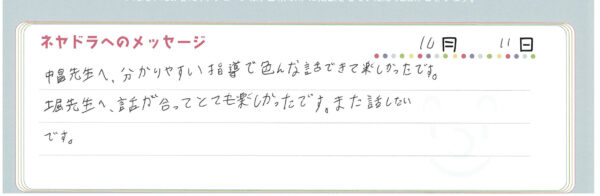 ネヤドラへのメッセージ 10月 11日
中畠先生へ、分かりやすい指導で色んな話できて楽しかったです。
堀先生へ、話が合ってとても楽しかったです。また話したい
です。